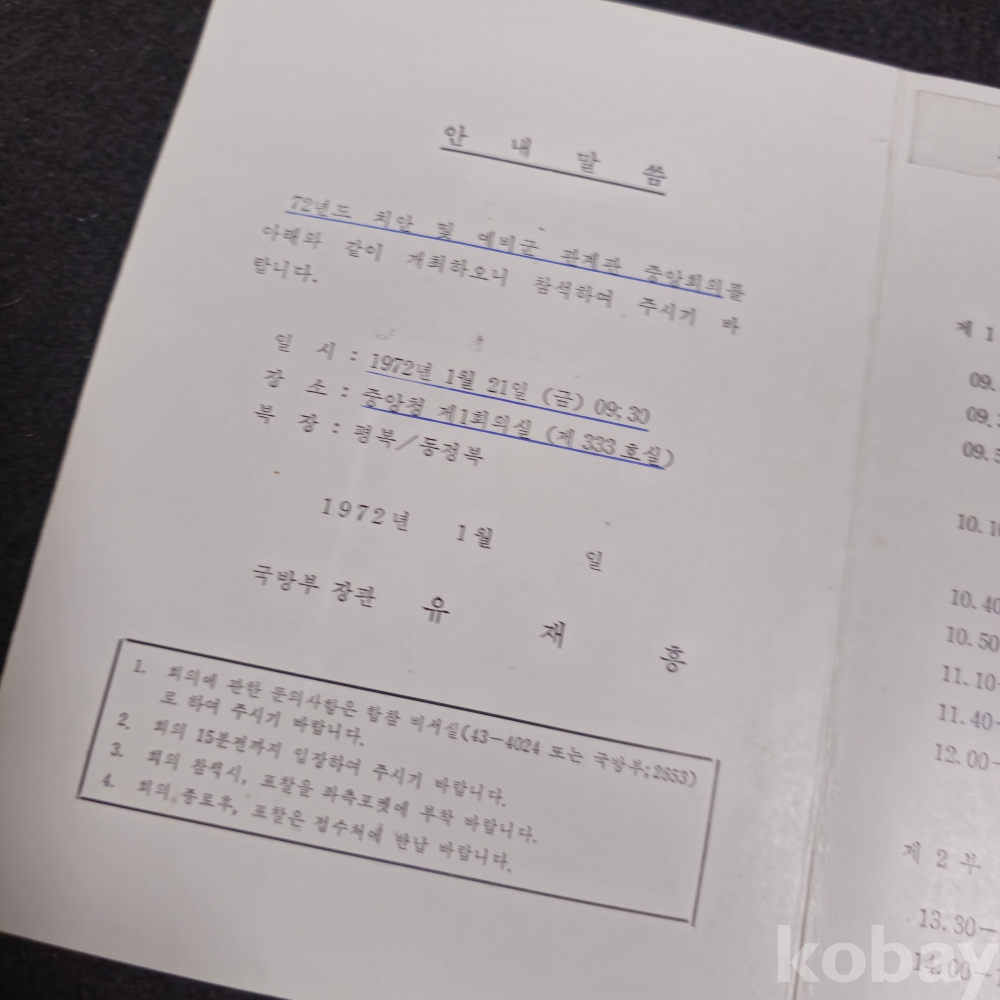 안 내 말 씀
72년도 치안 및 예비군 관계관 중앙회의를
아래와 같이 개최하오니 참석하여 주시기 바
랍니다.
일 시 : 1972년 1월 21일 (금) 09:30
장 소 : 중앙청 제1회의실 (제 333 호실)
복 장 : 평복/동정복
1972년 1월 일
국방부 장관 유 재 흥
1. 회의에 관한 문의사항은 합참 비서실(43-4024 또는 국방부;2553)
로 하여 주시기 바랍니다.
2. 회의 15분전까지 입장하여 주시기 바랍니다.
3. 회의 참석시, 표찰을 좌측포켓에 부착 바랍니다.
4. 회의 종료후, 표찰은 접수처에 반납 바랍니다.
제 1
09.
09.
09.5
10.10
10.40
10.50
11.10-
11.40-
12.00-
제 2 부
13.30-
14.00-
kobay